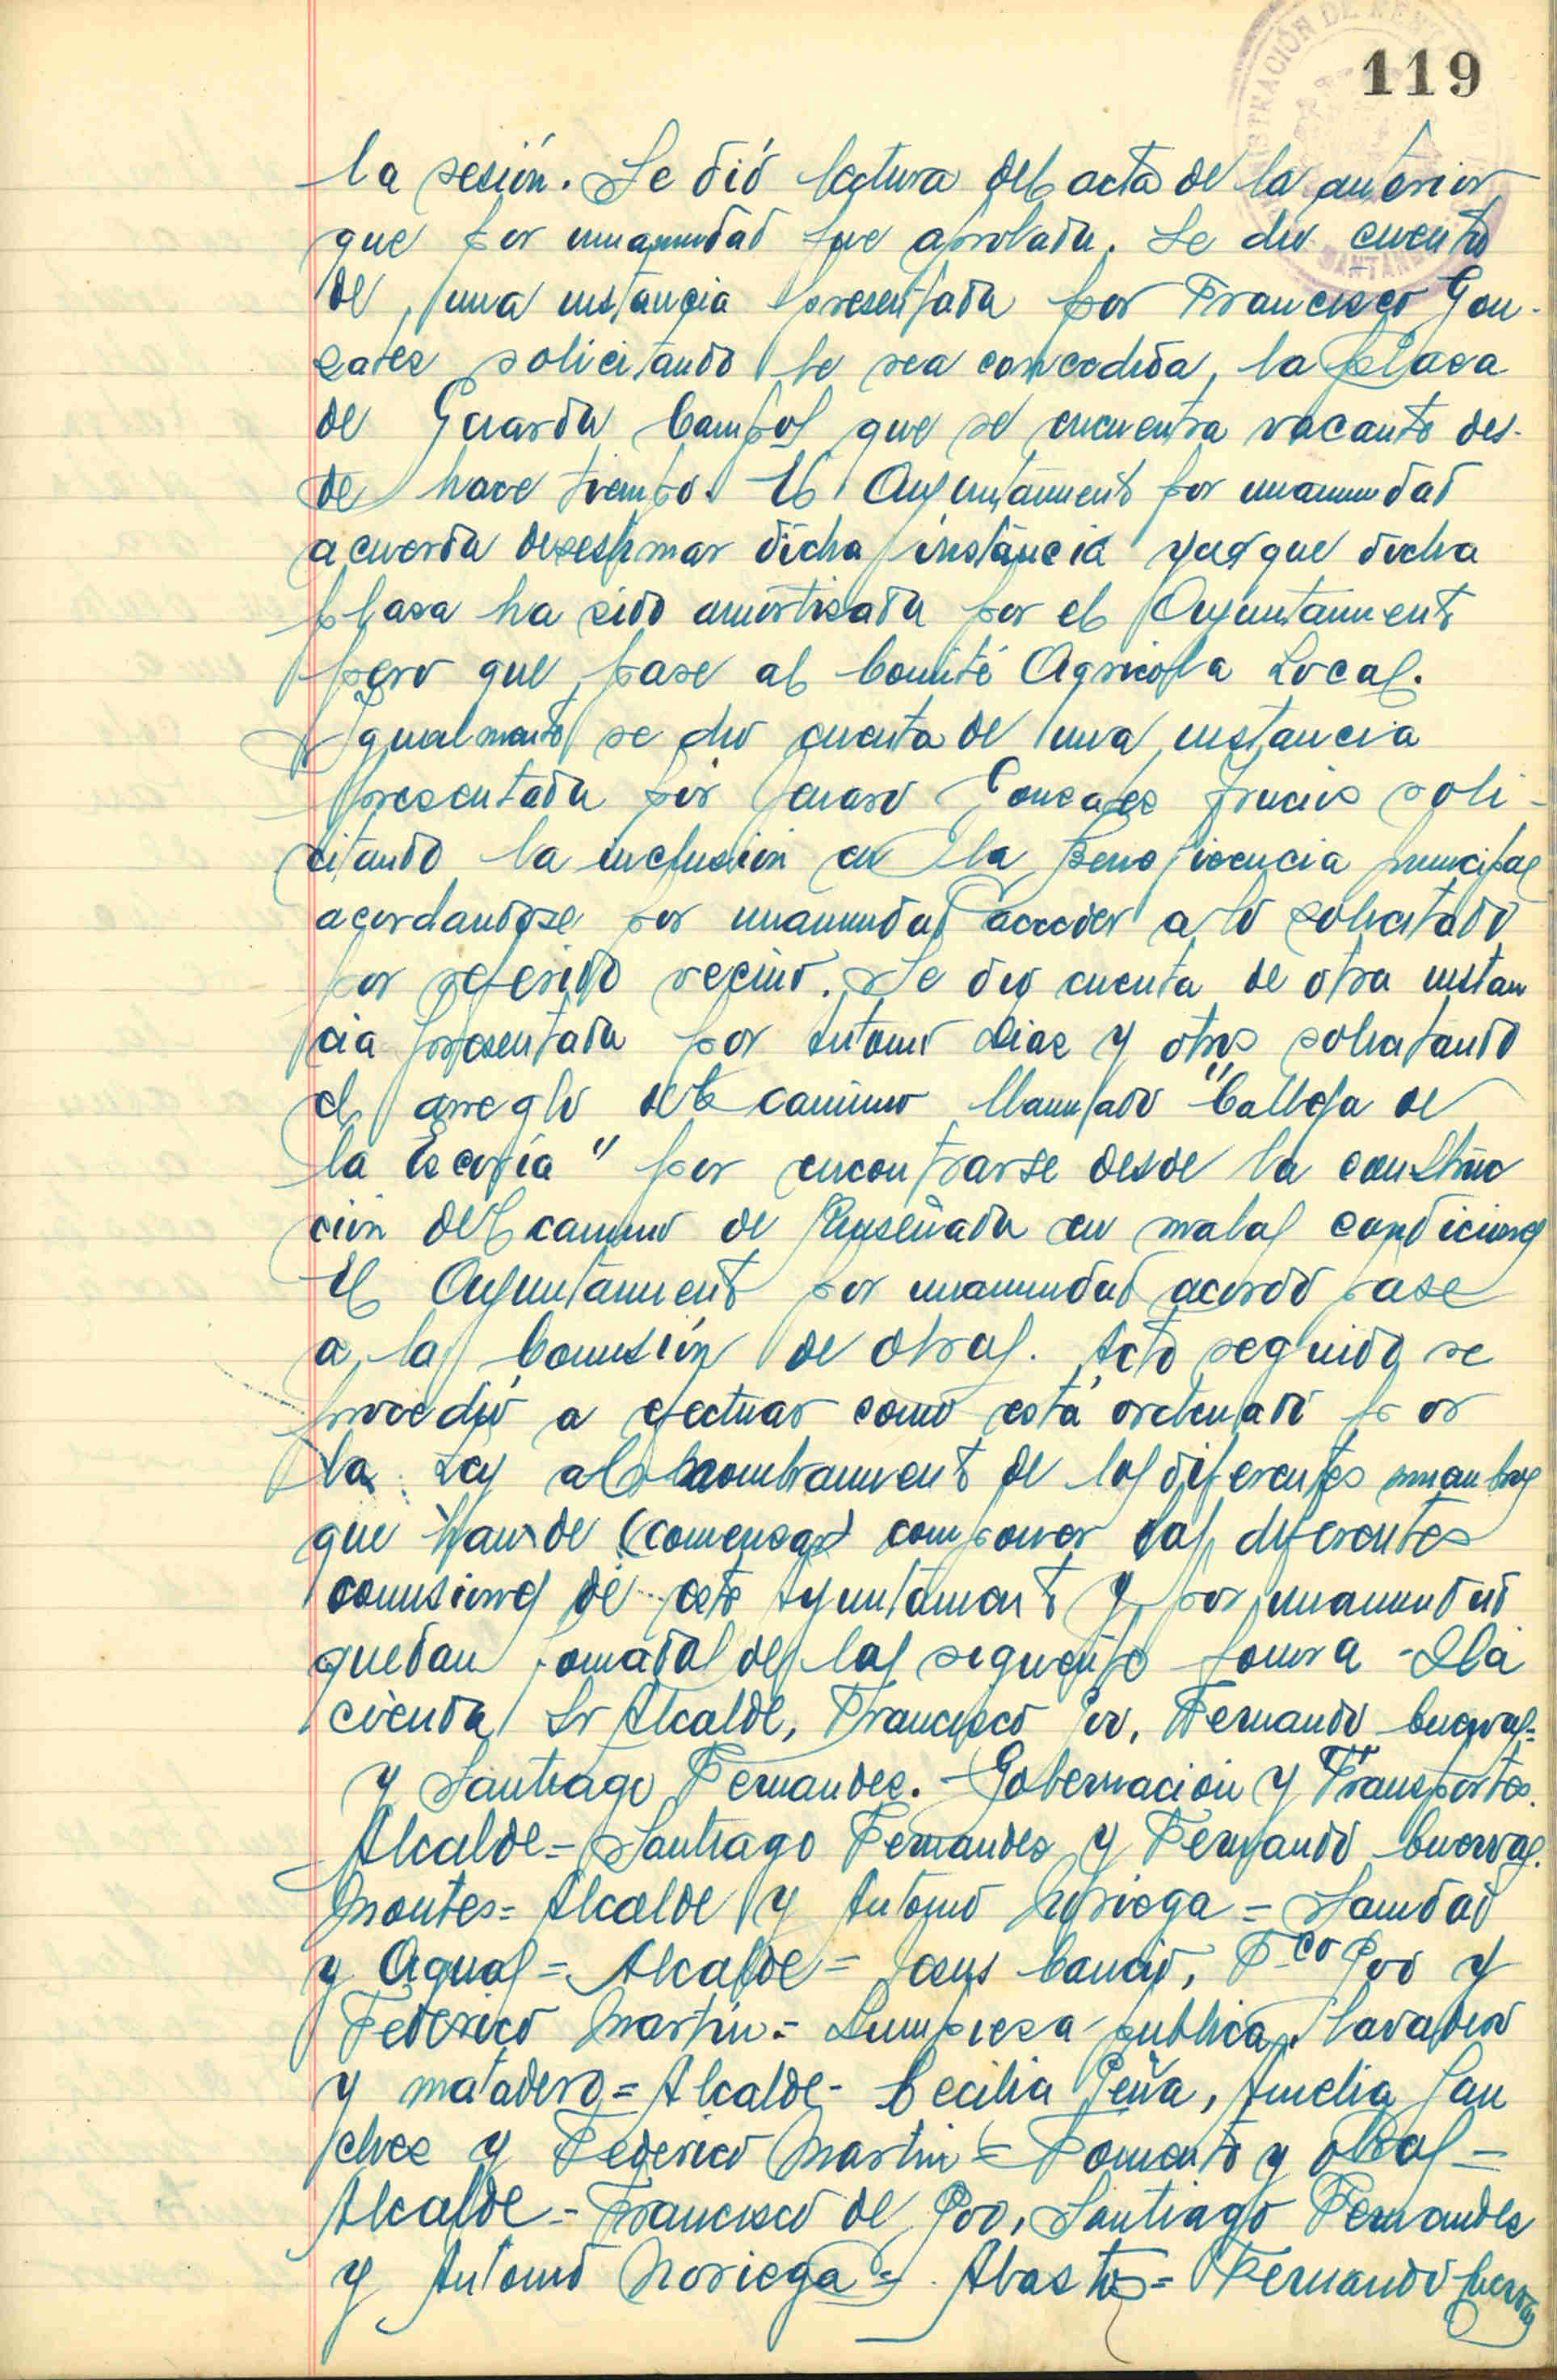 119
la sesión. Se dió lectura del acta de la anterior
que por unanimidad fue aprobada. Se dio cuenta
de una instancia presentada por Francisco Gon-
zalez solicitando le sea concedida, la plaza
de Guarda Campos que se encuentra vacante des-
de hace tiempo. El Ayuntamiento por unanimidad
acuerda desestimar dicha instancia ya que dicha
plaza ha sido amortizada por el Ayuntamiento
pero que pase al Comité Agricola Local.
Igualmente se dio cuenta de una instancia
presentada por Genaro Gonzalez soli-
citando la inclusión en la Beneficencia municipal
acordandose por unanimidad acceder a lo solicitado
por referido vecino. Se dio cuenta de otra instan
cia presentada por Antonio Diaz y otros solicitando
el arreglo del camino llamado "Calleja de
la Escoria" por encontrarse desde la construc
ción del camino de Penseñada en malas condiciones
El Ayuntamiento por unanimidad acordó pase
a la Comisión de obras. Acto seguido se
procedió a efectuar como está ordenado por
la Ley al nombramiento de los diferentes miembros
que han de (comenzar) componer las diferentes
comisiones de este Ayuntamiento y por unanimidad
quedan formadas de la siguiente forma - Ha
cienda Sr Alcalde, Francisco Poo, Fernando Cuevas-
y Santiago Fernandez. - Gobernación y Transportes.
Alcalde = Santiago Fernandez y Fernando Cuevas.
Montes = Alcalde y Antonio Noriega = Sanidad
y Aguas = Alcalde = Jesus Cancio, Fco Poo y
Federico Martín = Limpieza publica, lavadero
y matadero = Alcalde - Cecilia Peña, Amelia San
chez y Federico Martin = Fomento y obras =
Alcalde - Francisco de Poo, Santiago Fernandez
y Antonio Noriega = Abastos = Fernando Cuevas